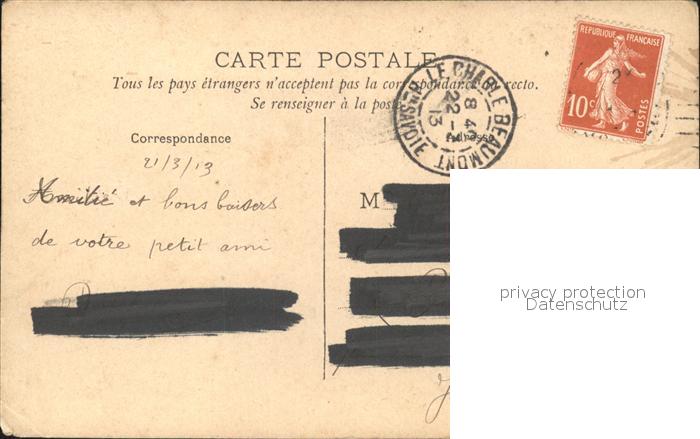 CARTE POSTALE
Tous les pays étrangers n'acceptent pas la correspondance au recto.
Se renseigner à la poste
RÉPUBLIQUE FRANÇAISE
10c
POSTES
LE CHABLE BEAUMONT
HTE SAVOIE
8 4
22 -
13
Correspondance
Adresse
21/3/13
Amitié et bons baisers
de votre petit ami
M
privacy protection
Datenschutz